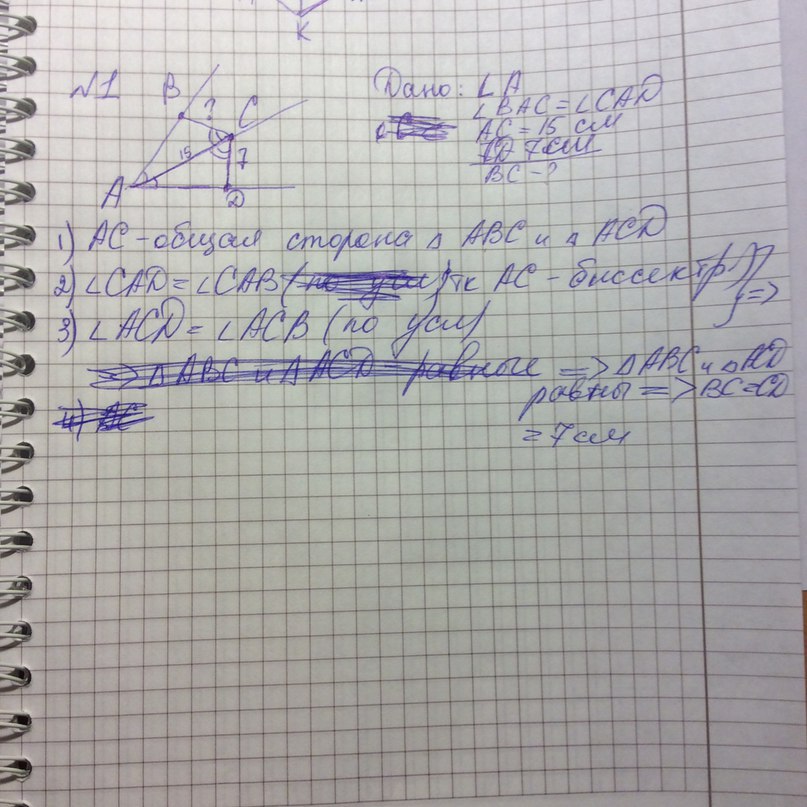 K
№1
B
?
C
15
7
A
D
Дано: ∠A
∠BAC = ∠CAD
AC = 15 см
CD 7см
BC - ?
1) AC - общая сторона △ ABC и △ ACD
2) ∠CAD = ∠CAB (по усл) тк AC - биссектр.
3) ∠ACD = ∠ACB (по усл) =>
=> △ ABC и △ ACD - равные => △ABC и △ACD
равны => BC = CD
4) AC
= 7 см